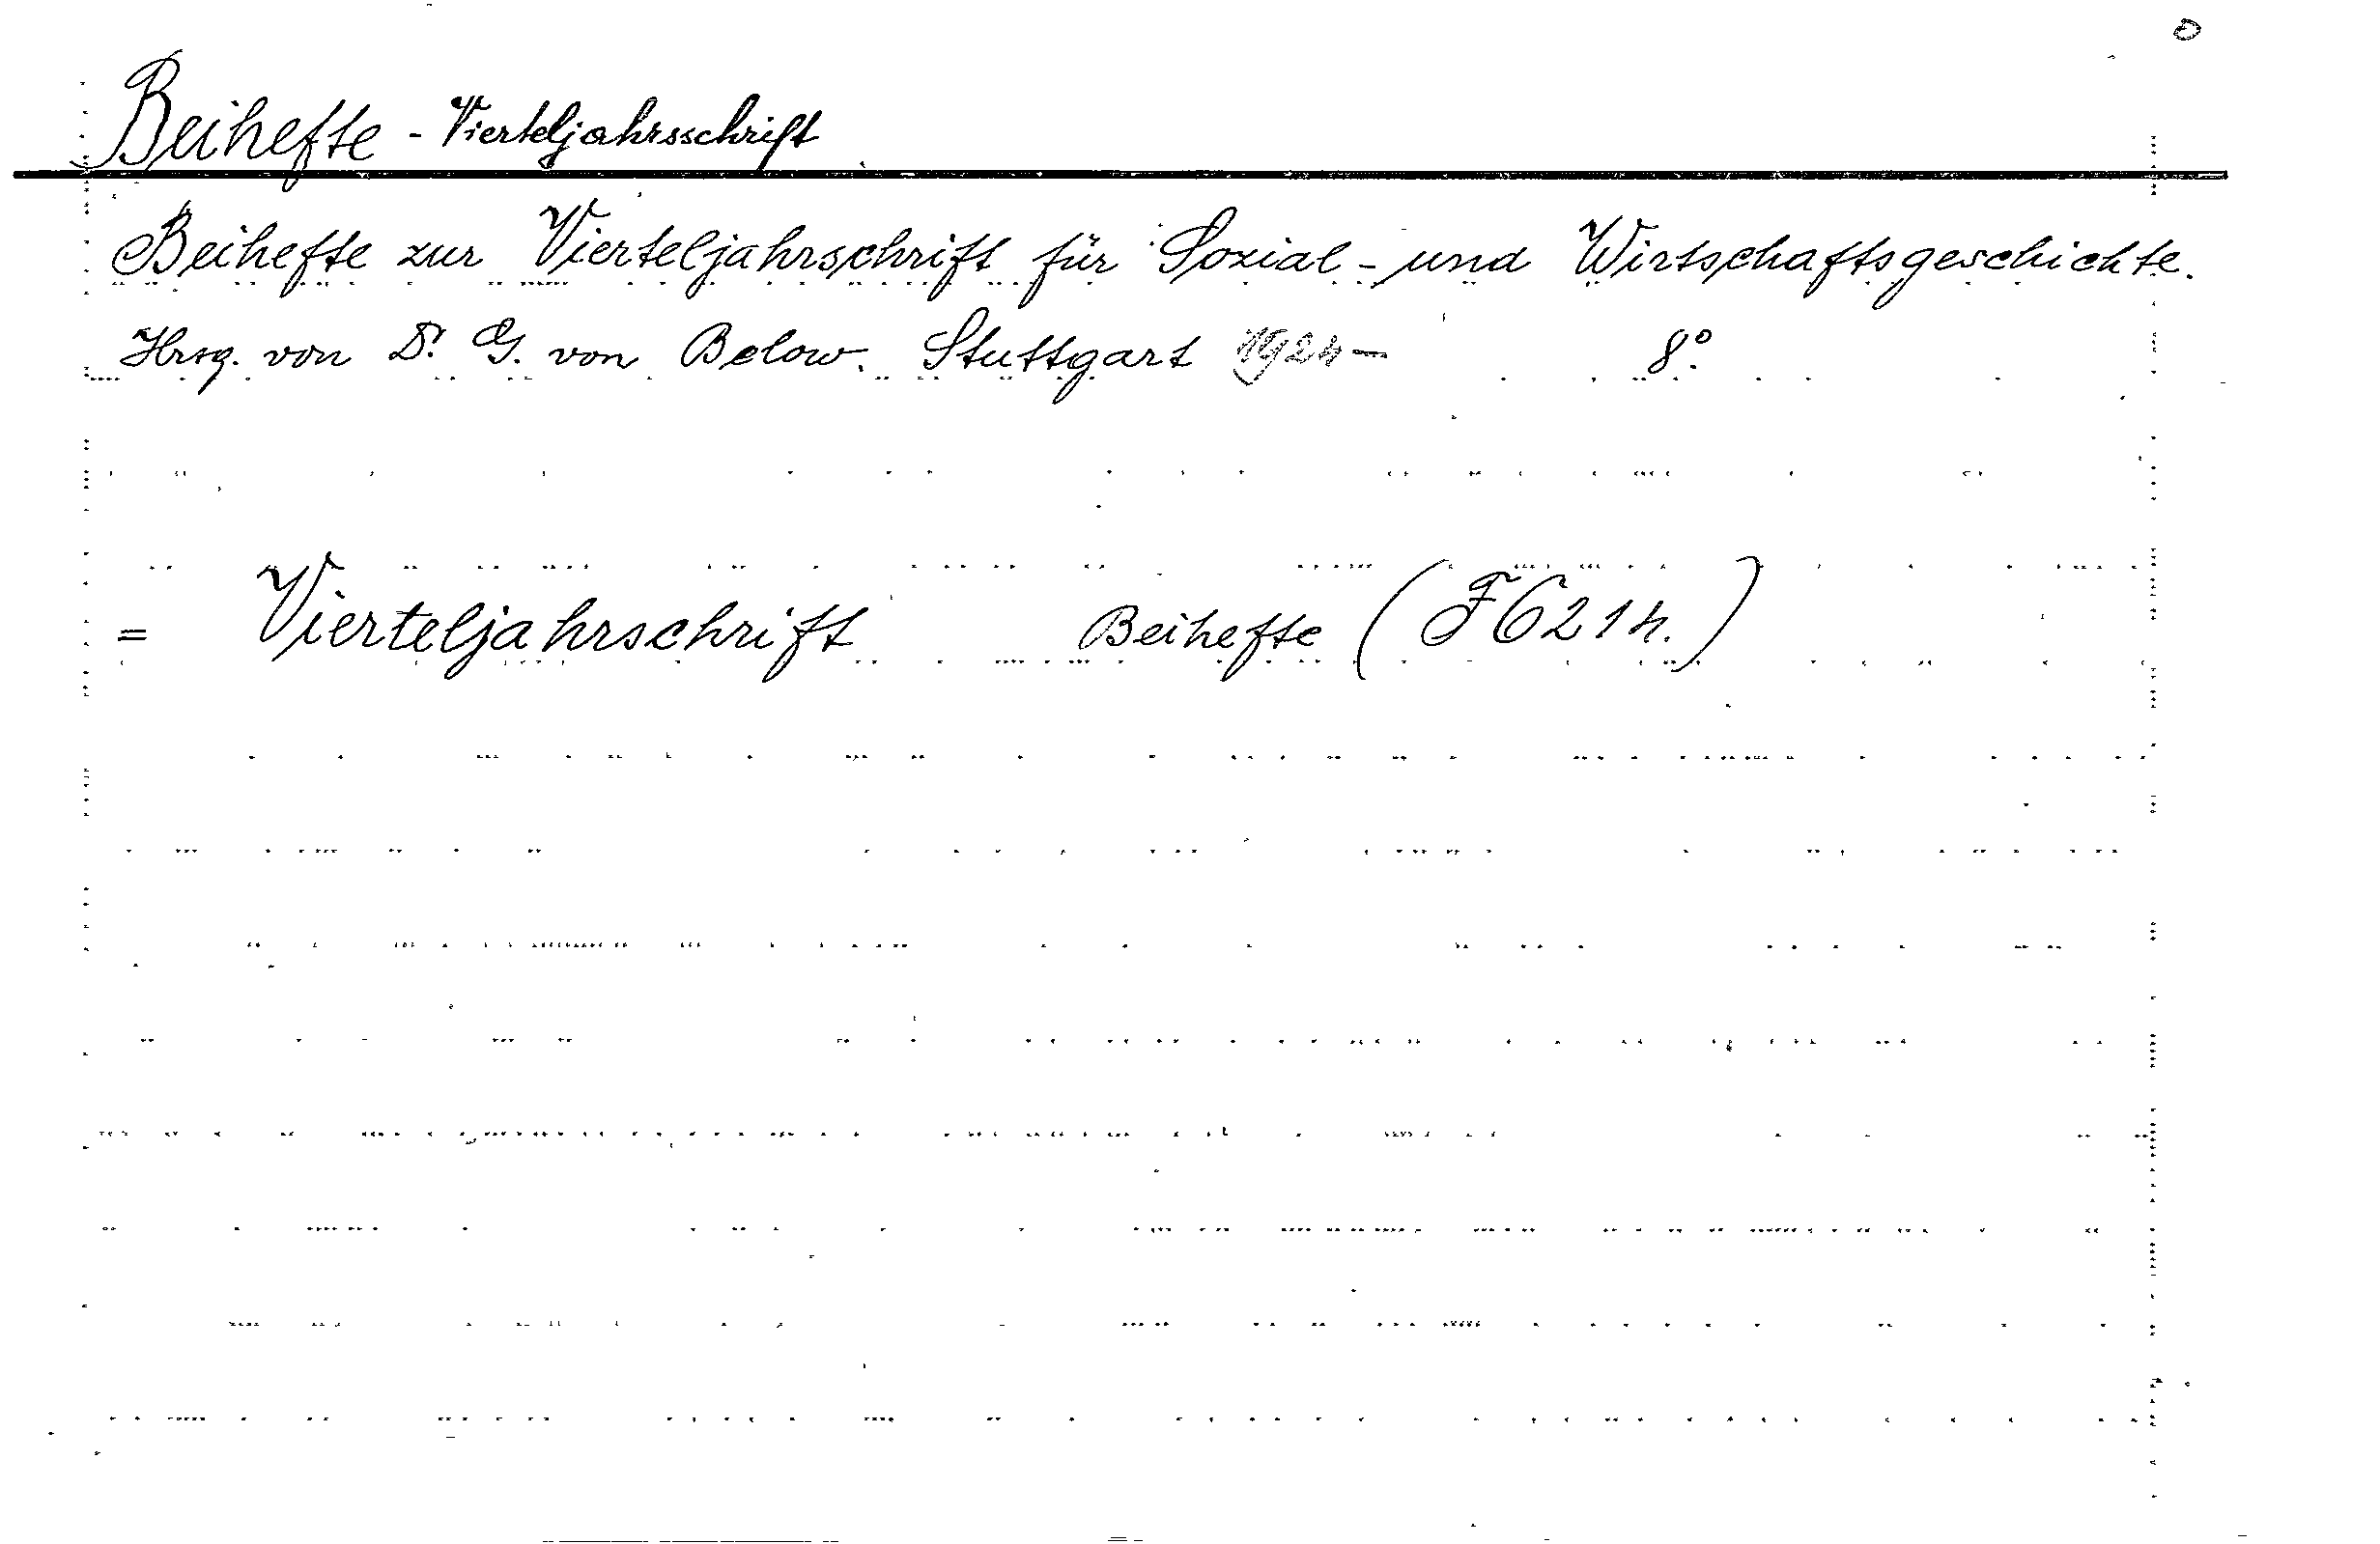 Beihefte - Vierteljahrsschrift
Beihefte zur Vierteljahrschrift für Sozial- und Wirtschaftsgeschichte.
Hrsg. von Dr. G. von Below. Stuttgart 1924— 8°.
= Vierteljahrschrift Beihefte (F6214.)